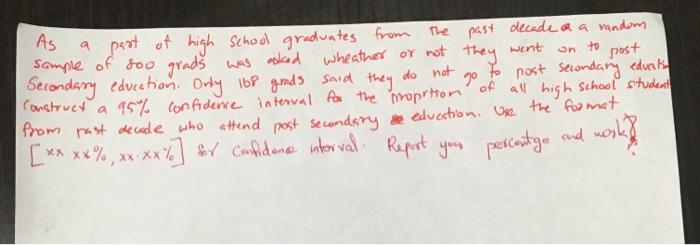 As a part of high school graduates from the past decade a a random
sample of 800 grads was asked wheather or not they went on to post
Secondary education. Only 168 grads said they do not go to post secondary education
Construct a 95% confidence interval for the proprtion of all high school student
from past decade who attend post secondary education. Use the format
[xx.xx%, xx.xx%] for confidence interval. Report your percentge and work?